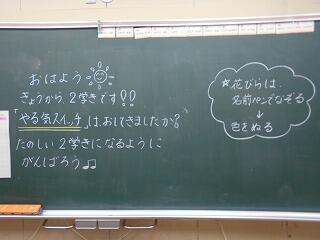 おはよう
きょうから、2学きです!!
「やる気スイッチ」は、おしてきましたか?
たのしい 2学きになるように
がんばろう♫
☆花びらは、
名前ペンでなぞる
↓
色をぬる